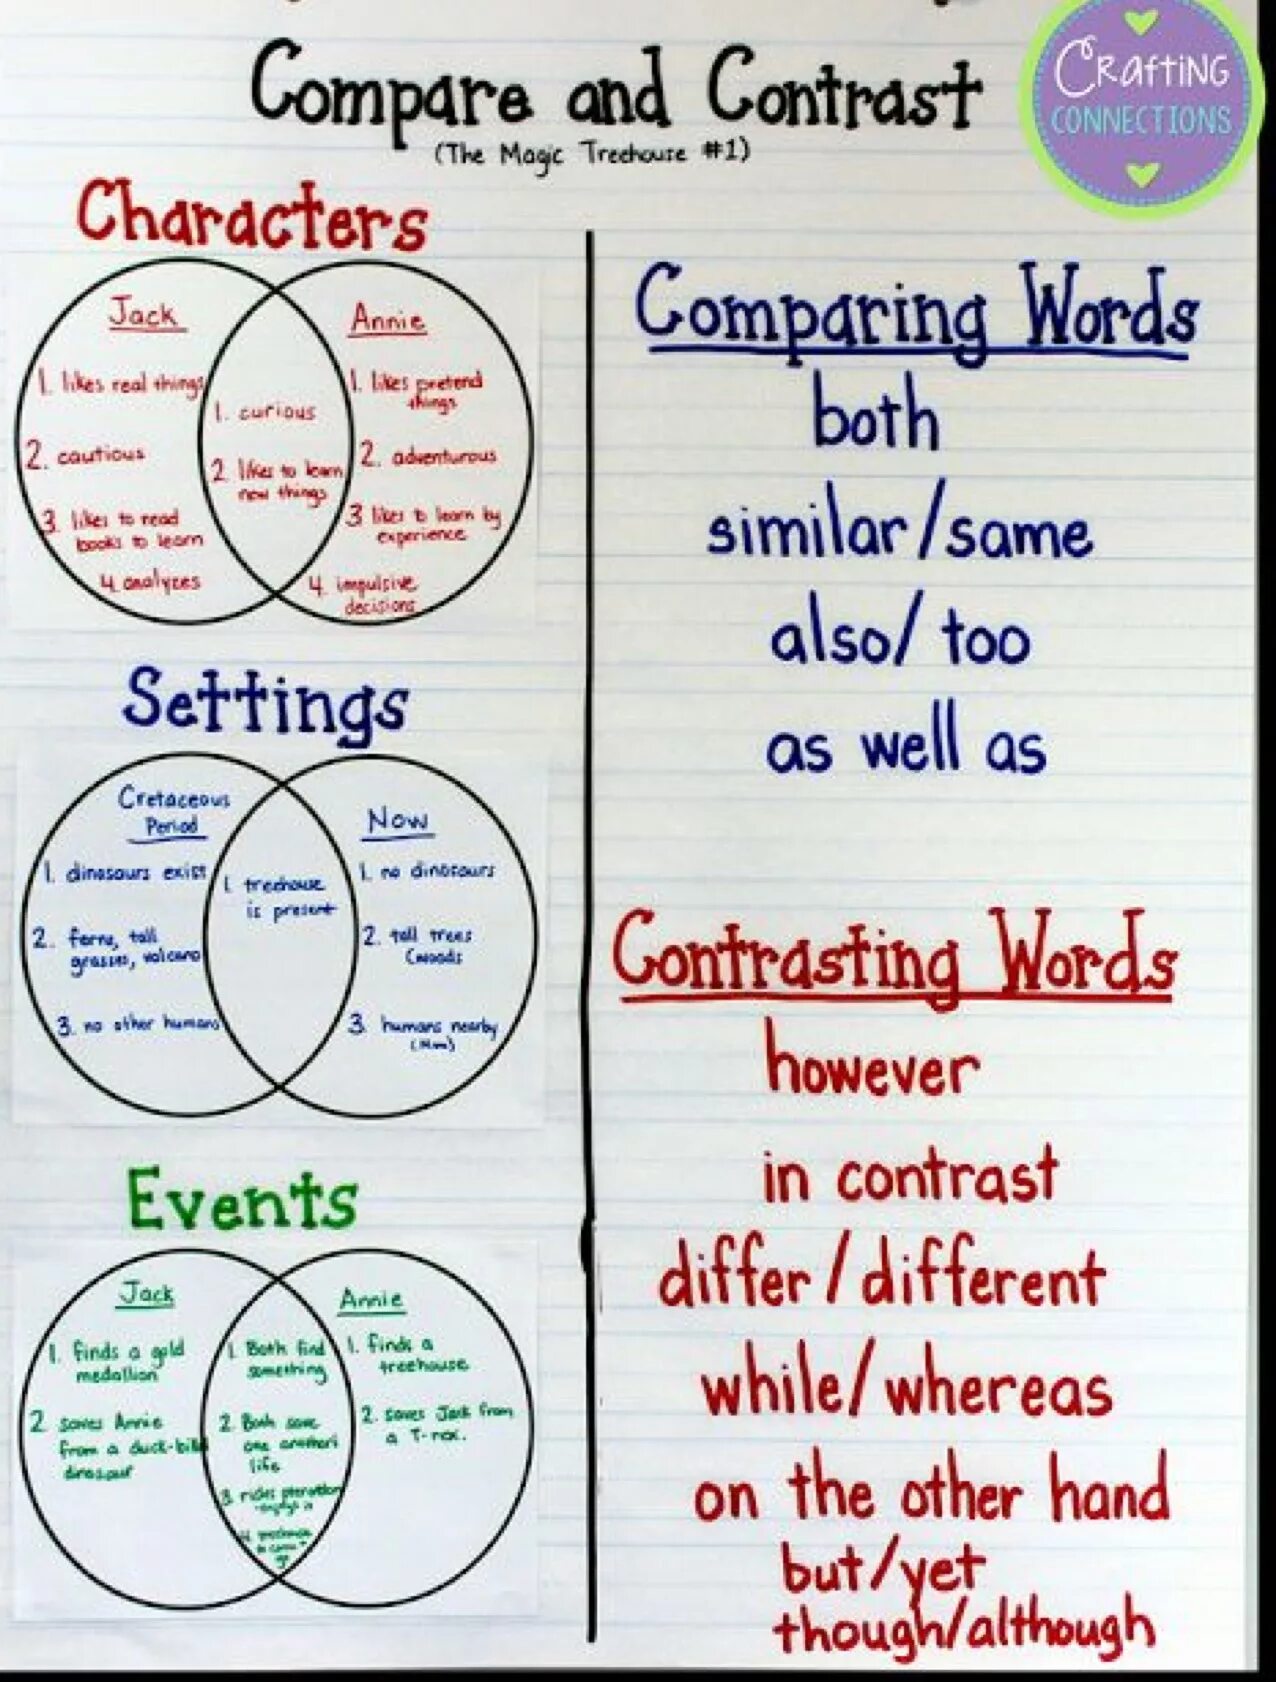 Compare and Contrast
(The Magic Treehouse #1)
CRAFTING
CONNECTIONS
Characters
Jack
1. likes real things
2. cautious
3. likes to read
books to learn
4. analyzes
1. curious
2. likes to learn
new things
Annie
1. likes pretend
things
2. adventurous
3 likes to learn by
experience
4. impulsive
decisions
Settings
Cretaceous
Period
1. dinosaurs exist
2. ferns, tall
grasses, volcano
3. no other humans
1. treehouse
is present
Now
1. no dinosaurs
2. tall trees
(woods
3. humans nearby
Events
Jack
1. finds a gold
medallion
2 saves Annie
from a duck-bill
dinosaur
1. Both find
something
2. Both save
one another's
life
3. rides
4.
Annie
1. finds a
treehouse
2. saves Jack from
a T-rex.
Comparing Words
both
similar/same
also/too
as well as
Contrasting Words
however
in contrast
differ/different
while/whereas
on the other hand
but/yet
though/although